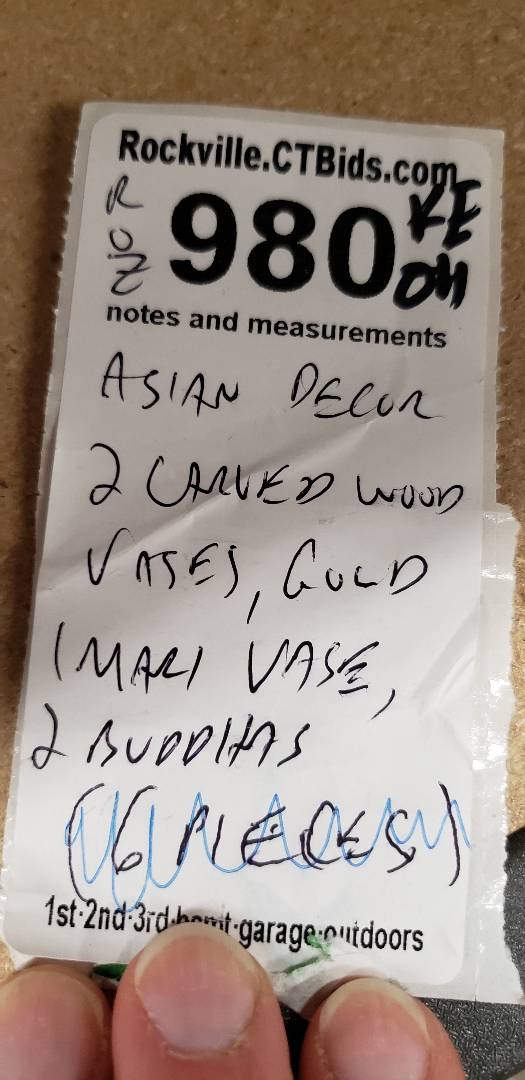 Rockville.CTBids.com
980
KE
OH
notes and measurements
ASIAN DECOR
2 CARVED WOOD
VASES, GOLD
IMARI VASE,
2 BUDDHAS
(6 PIECES)
1st·2nd·3rd·bsmt·garage·outdoors